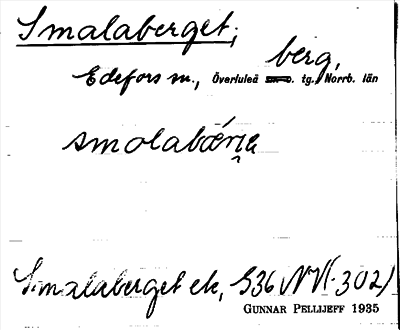 Smalaberget;
berg,
Edefors sn., Överluleå tg., Norrb. län
Smalaberget ek, S36 NV(302)
GUNNAR PELLIJEFF 1935